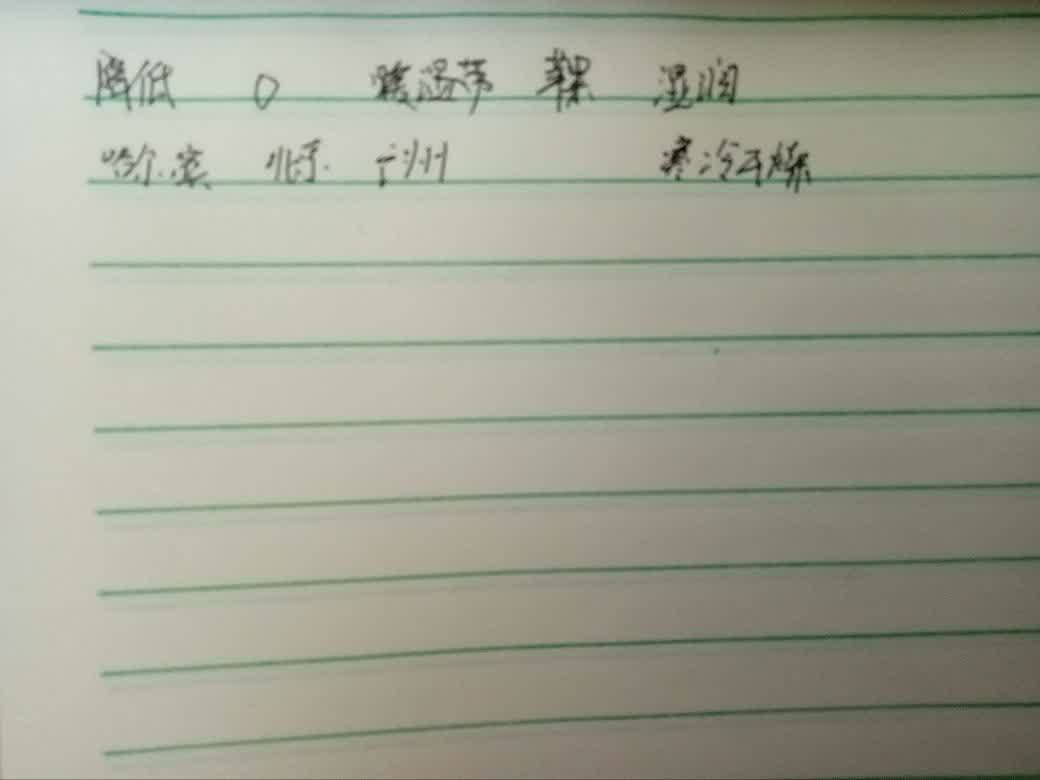 降低 0 暖温带 苹果 湿润
哈尔滨 北京 广州 寒冷干燥